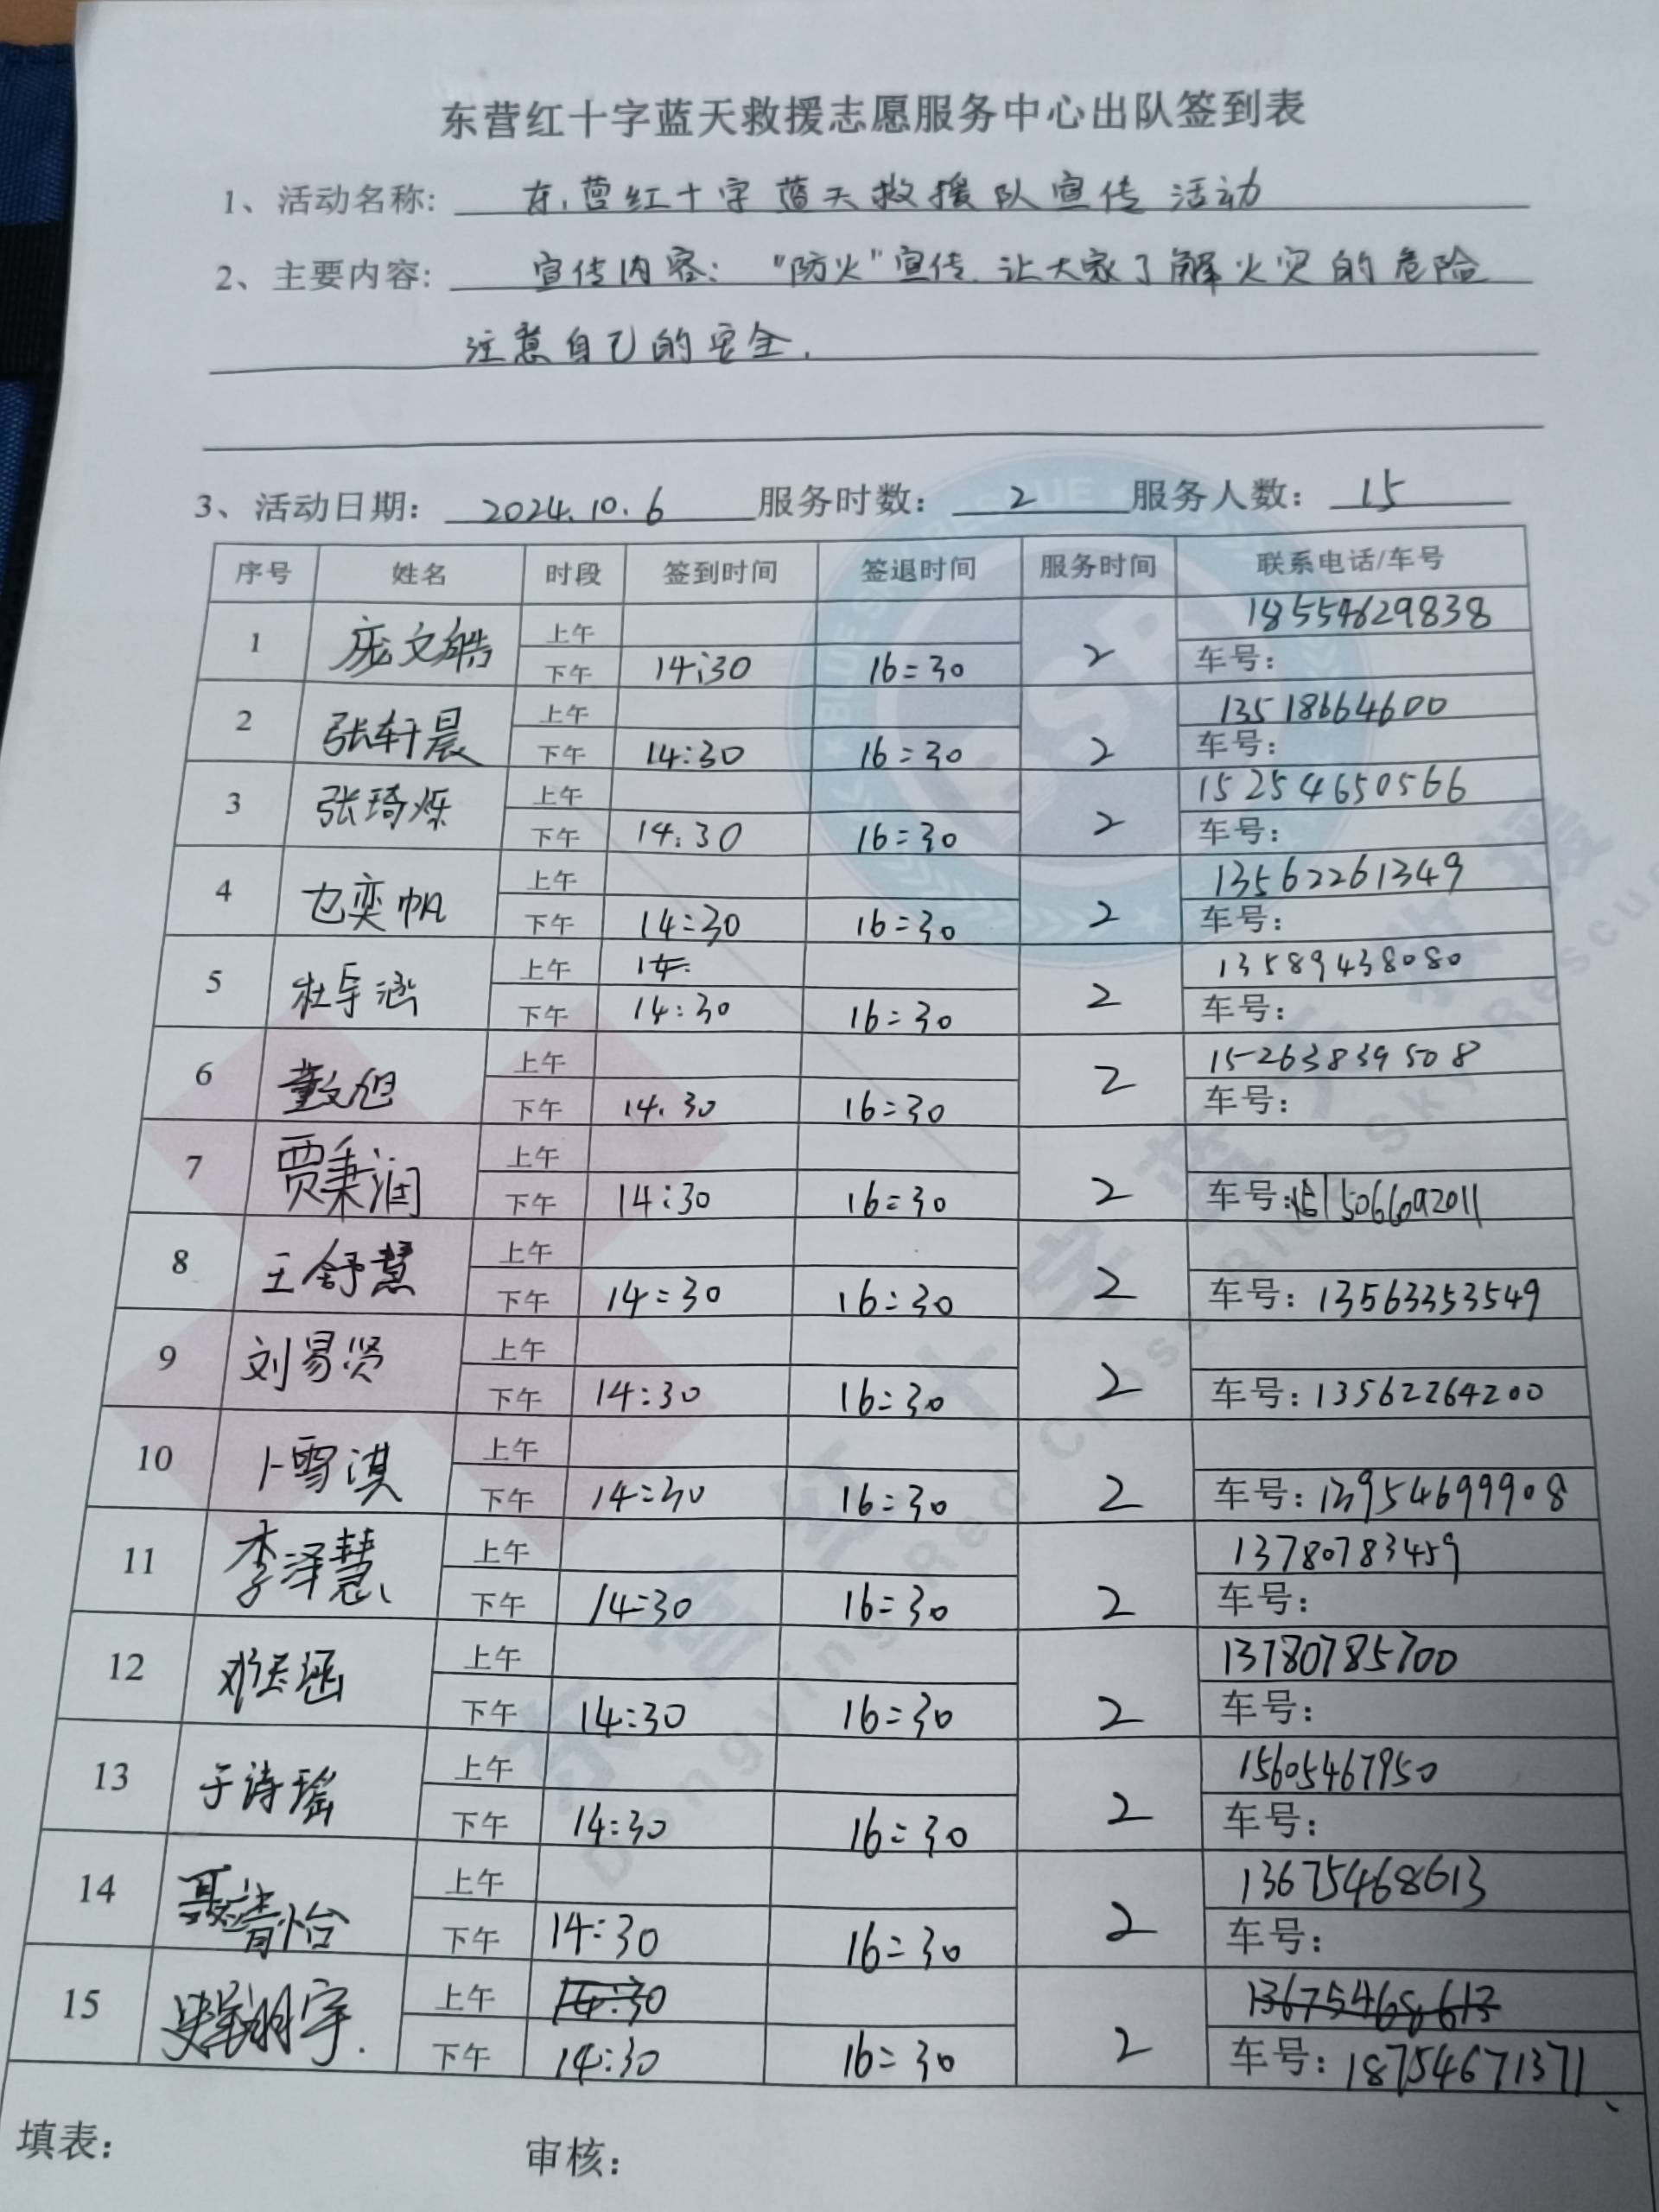 东营红十字蓝天救援志愿服务中心出队签到表
1、活动名称: 东营红十字蓝天救援队宣传活动
2、主要内容: 宣传内容: "防火"宣传.让大家了解火灾的危险
注意自己的安全.
3、活动日期: 2024.10.6 服务时数: 2 服务人数: 15
序号 姓名 时段 签到时间 签退时间 服务时间 联系电话/车号
1 庞文皓 上午 2 18554629838
下午 14:30 16:30 车号:
2 张轩晨 上午 2 13518664600
下午 14:30 16:30 车号:
3 张琦烁 上午 2 15254650566
下午 14:30 16:30 车号:
4 奕帆 上午 2 13562261349
下午 14:30 16:30 车号:
5 杜宇涵 上午 2 13589438080
下午 14:30 16:30 车号:
6 旭 上午 2 15263839508
下午 14.30 16:30 车号:
7 贾秉润 上午 2
下午 14:30 16:30 车号: 15066092011
8 王舒慧 上午 2
下午 14:30 16:30 车号: 13563353549
9 刘易贤 上午 2
下午 14:30 16:30 车号: 13562264200
10 卜雪淇 上午 2
下午 14:30 16:30 车号: 13954699908
11 李泽慧 上午 2 13780783459
下午 14:30 16:30 车号:
12 上午 2 13780785700
下午 14:30 16:30 车号:
13 于诗瑶 上午 2 15605467950
下午 14:30 16:30 车号:
14 怡 上午 2 13675468613
下午 14:30 16:30 车号:
15 翔宇. 上午 14:30 2 13675468613
下午 14:30 16:30 车号: 18754671371
填表: 审核: